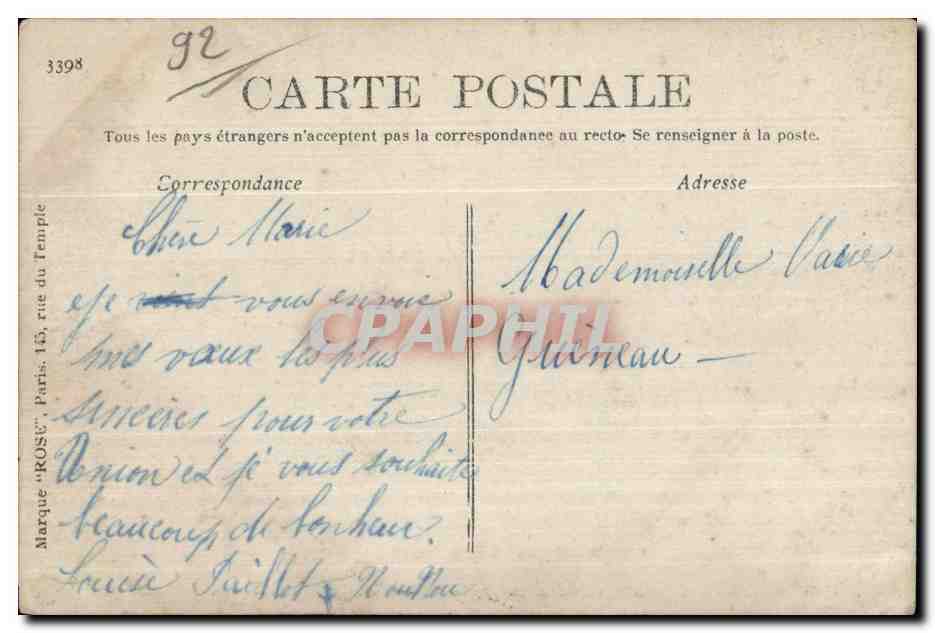 3398
92
CARTE POSTALE
Tous les pays étrangers n'acceptent pas la correspondance au recto- Se renseigner à la poste.
Correspondance
Adresse
Marque "ROSE", Paris. 145, rue du Temple
Chère Marie
eje vous envoie
mes vœux les plus
sincères pour votre
Union et je vous souhaite
beaucoup de bonheur.
Louise
Mademoiselle Marie
Guéneau —
CPAPHIL